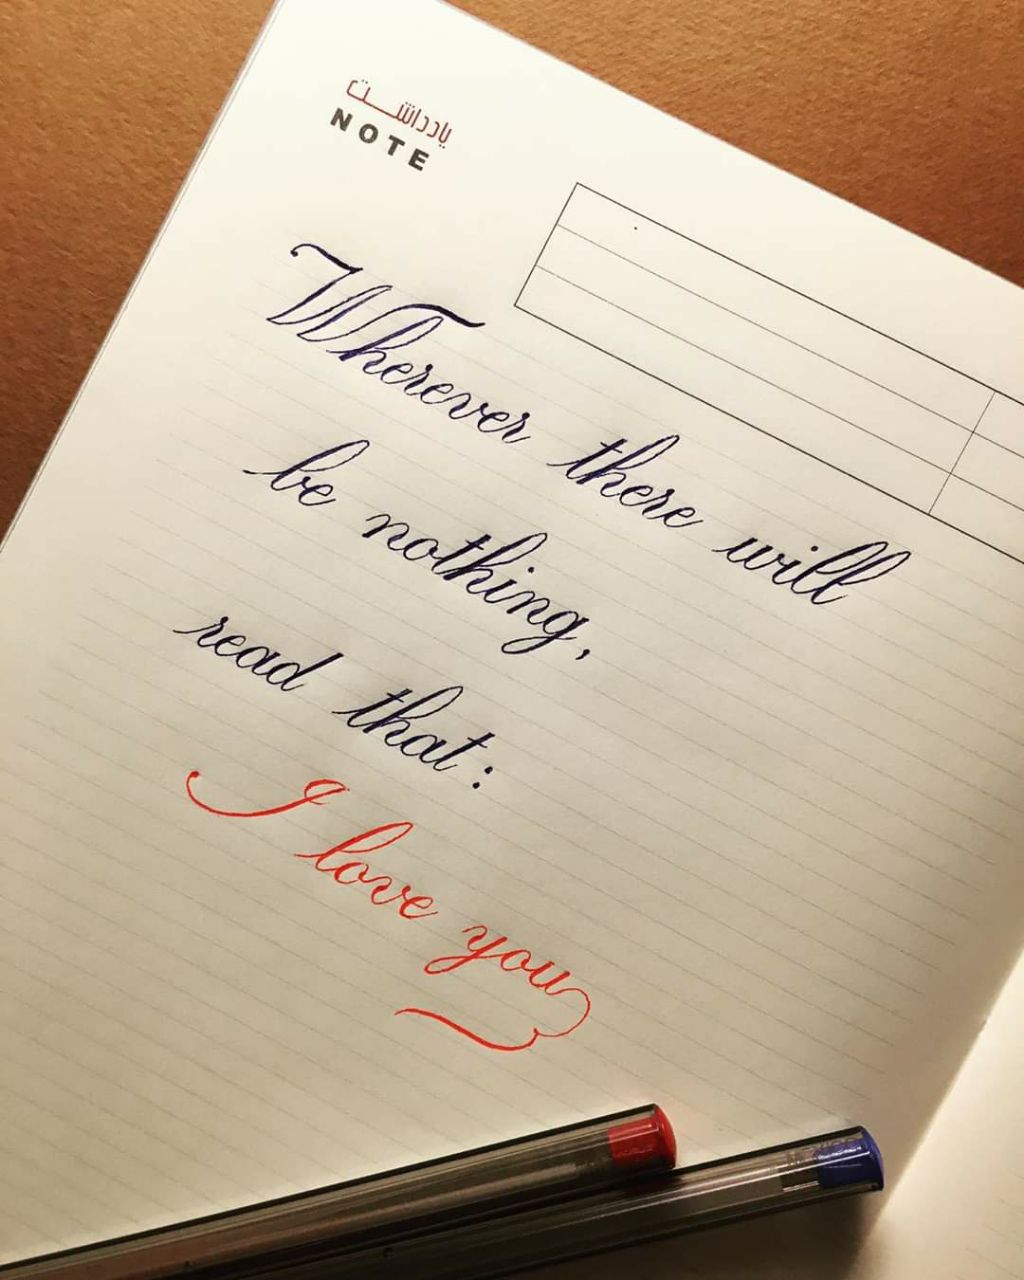 یادداشت
NOTE
Wherever there will
be nothing,
read that:
I love you